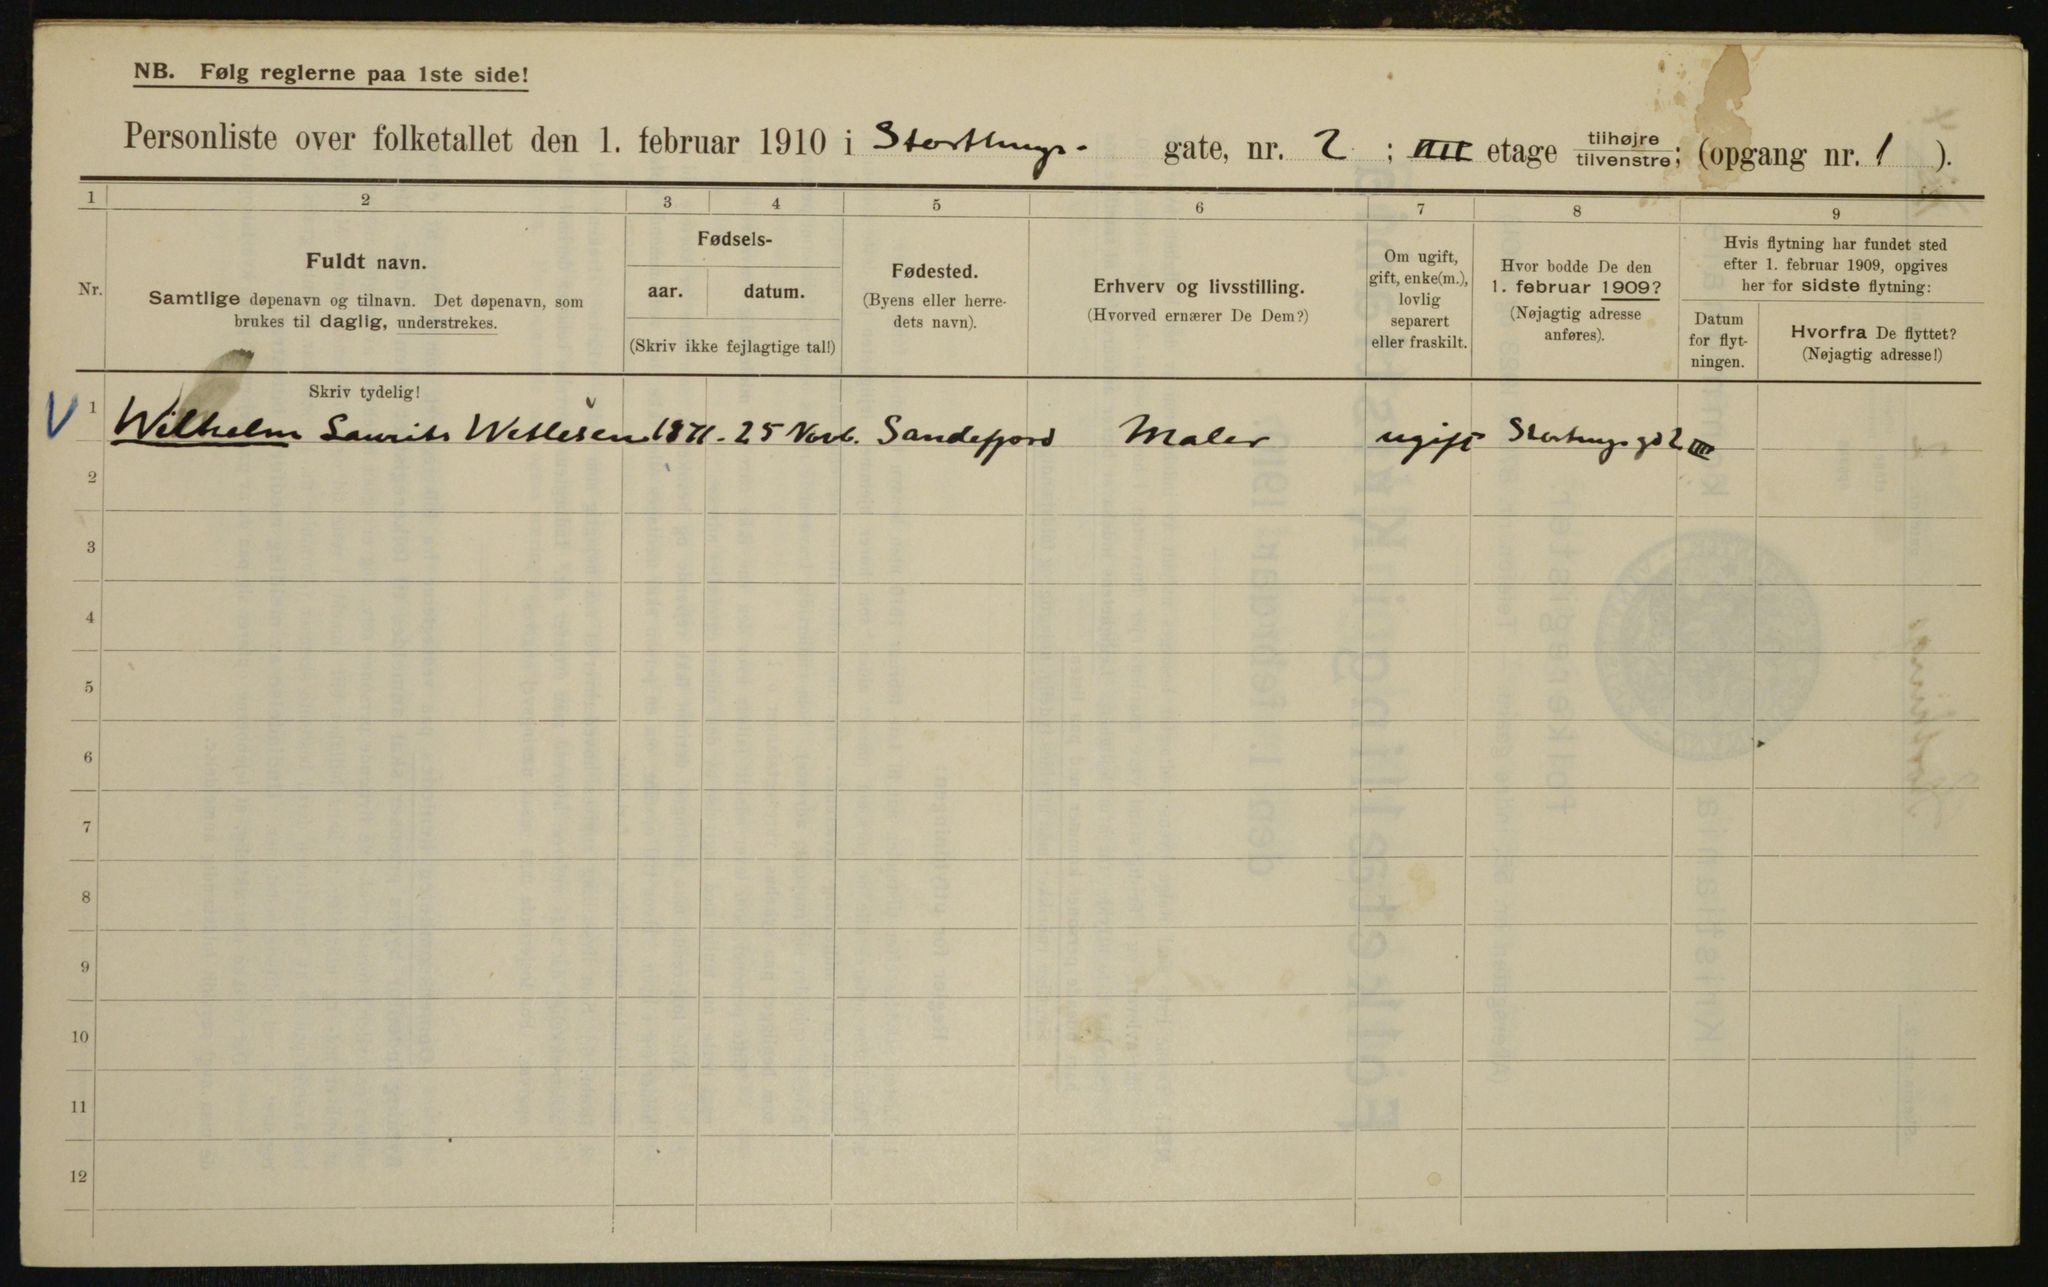 NB. Følg reglerne paa 1ste side!
Personliste over folketallet den 1. februar 1910 i Storthings- gate, nr. 2 ; IIII etage tilhøjre tilvenstre; (opgang nr. 1 ).
1 2 3 4 5 6 7 8 9
Nr.
Fuldt navn.
Samtlige døpenavn og tilnavn. Det døpenavn, som
brukes til daglig, understrekes.
Fødsels-
aar. datum.
(Skriv ikke fejlagtige tal!)
Fødested.
(Byens eller herre-
dets navn).
Erhverv og livsstilling.
(Hvorved ernærer De Dem?)
Om ugift,
gift, enke(m.),
lovlig
separert
eller fraskilt.
Hvor bodde De den
1. februar 1909?
(Nøjagtig adresse
anføres).
Hvis flytning har fundet sted
efter 1. februar 1909, opgives
her for sidste flytning:
Datum
for flyt-
ningen.
Hvorfra De flyttet?
(Nøjagtig adresse!)
Skriv tydelig!
V 1 Wilhelm Laurits Wetlesen 1871. 25 Novb. Sandefjord Maler ugift Storthings gd 2 IIII
2
3
4
5
6
7
8
9
10
11
12